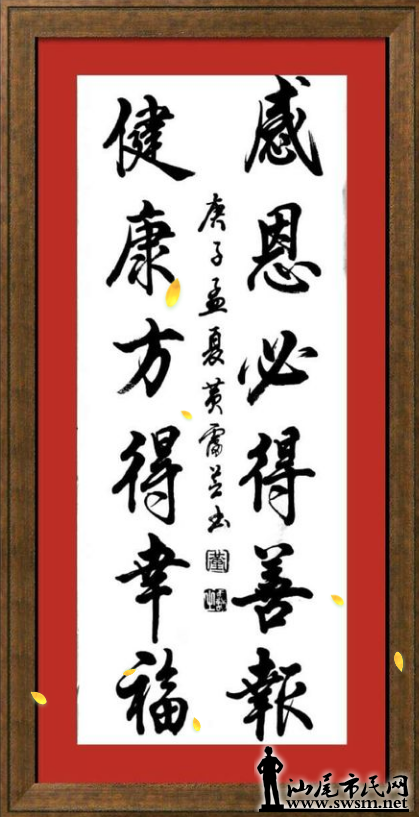 感恩必得善報
健康方得幸福
庚子孟夏黄雷
书
汕尾市民网
www.swsm.net